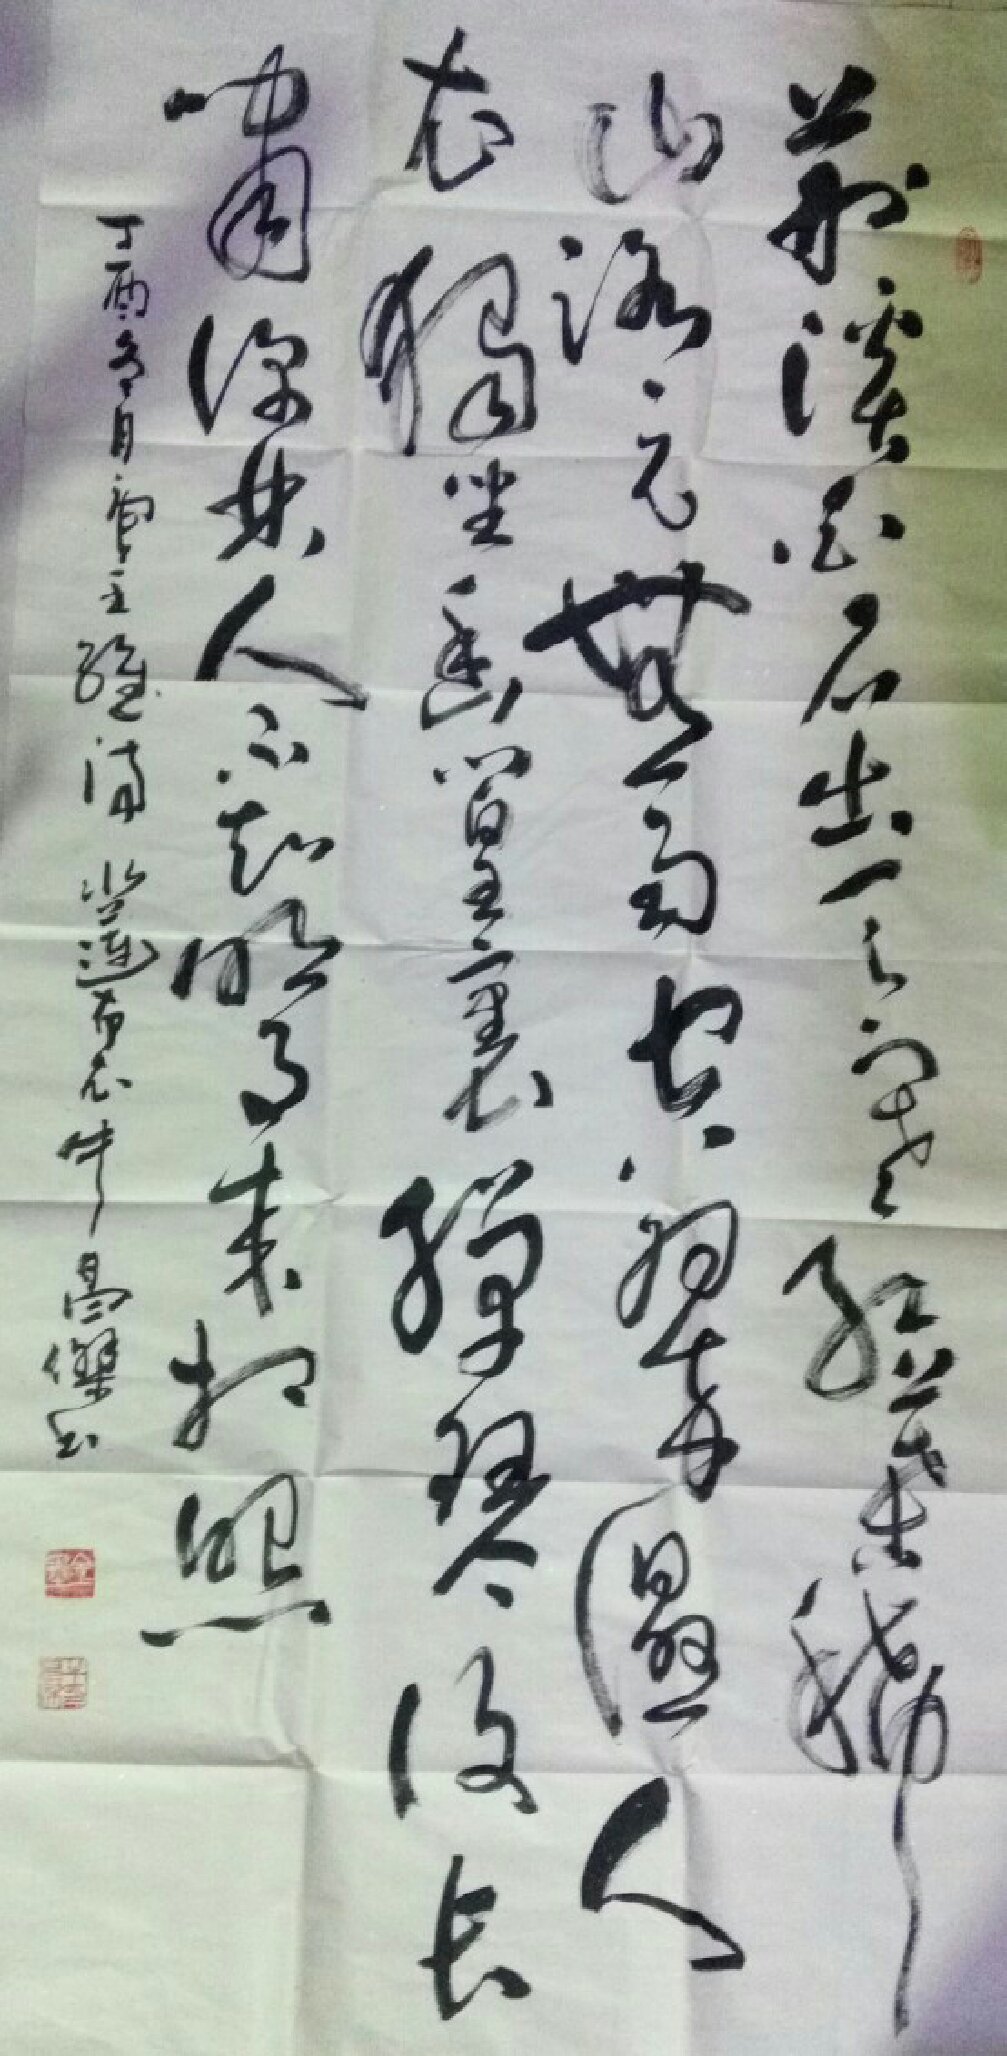 荊溪白石出天寒紅葉稀
山路元無雨空翠濕人
衣獨坐幽篁裏彈琴復長
嘯深林人不知明月來相照
丁酉冬月王維詩蓮布衣牛昌傑書